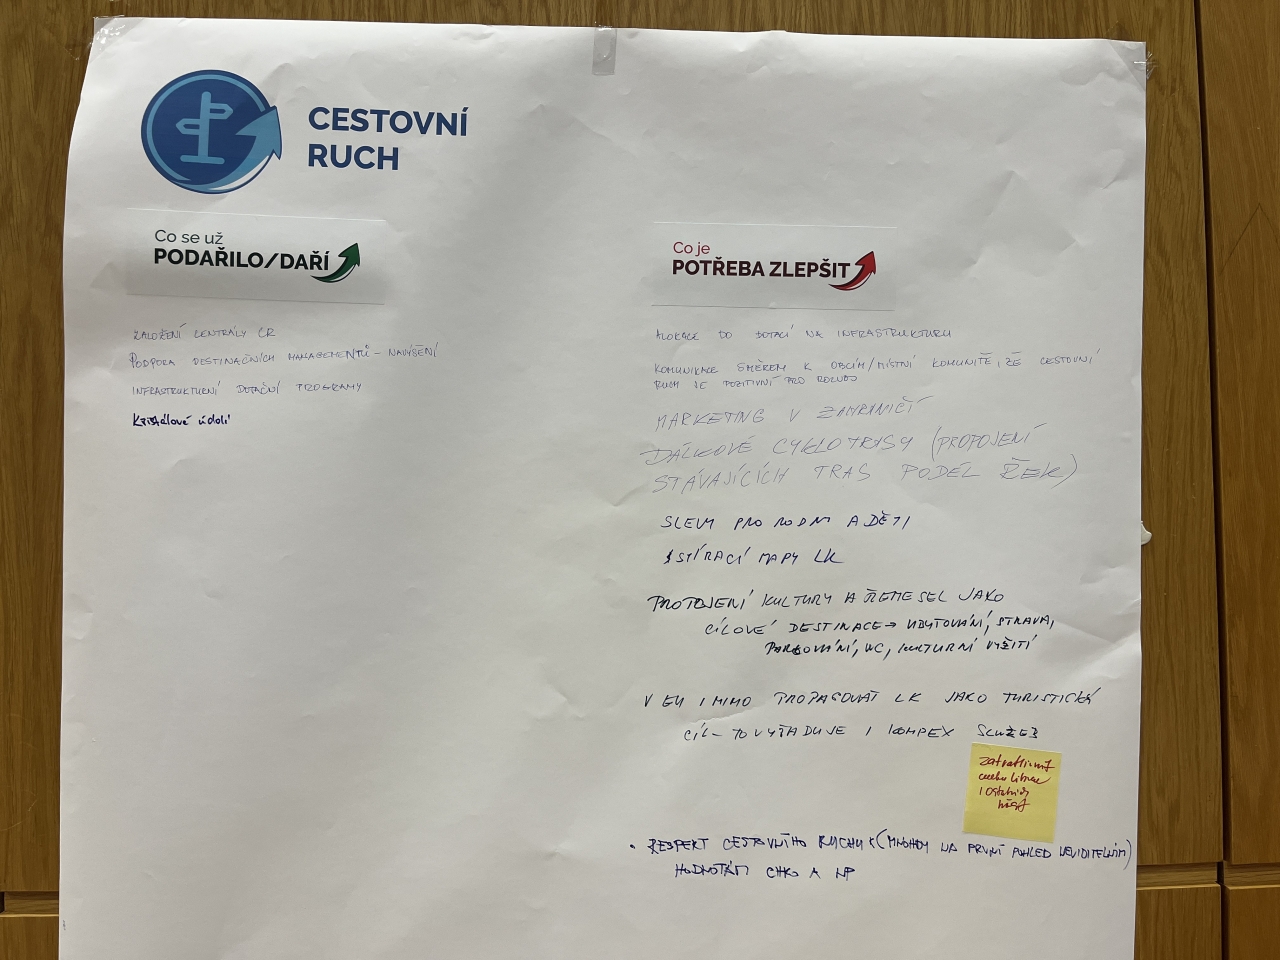 CESTOVNÍ
RUCH
Co se už
PODAŘILO/DAŘÍ
ZALOŽENÍ CENTRÁLY CR
PODPORA DESTINAČNÍCH MANAGEMENTŮ – NAVÝŠENÍ
INFRASTRUKTURNÍ DOTAČNÍ PROGRAMY
Křišťálové údolí
Co je
POTŘEBA ZLEPŠIT
ALOKACE DO DOTACÍ NA INFRASTRUKTURU
KOMUNIKACE SMĚREM K OBCÍM/MÍSTNÍ KOMUNITĚ, ŽE CESTOVNÍ
RUCH JE POZITIVNÍ PRO ROZVOJ
MARKETING V ZAHRANIČÍ
DÁLKOVÉ CYKLOTRASY (PROPOJENÍ
STÁVAJÍCÍCH TRAS PODÉL ŘEK)
SLEVY PRO RODINY A DĚTI
STÍRACÍ MAPY LK
PROPOJENÍ KULTURY A ŘEMESEL JAKO
CÍLOVÉ DESTINACE → UBYTOVÁNÍ, STRAVA,
PARKOVÁNÍ, WC, KULTURNÍ VYŽITÍ
V EU I MIMO PROPAGOVAT LK JAKO TURISTICKÝ
CÍL – TO VYŽADUJE I KOMPEX SLUŽEB
zatraktivnit
Liberec
i ostatních
měst
• RESPEKT CESTOVNÍHO RUCHU K (MNOHDY NA PRVNÍ POHLED NEVIDITELNÝM)
HODNOTÁM CHKO A NP